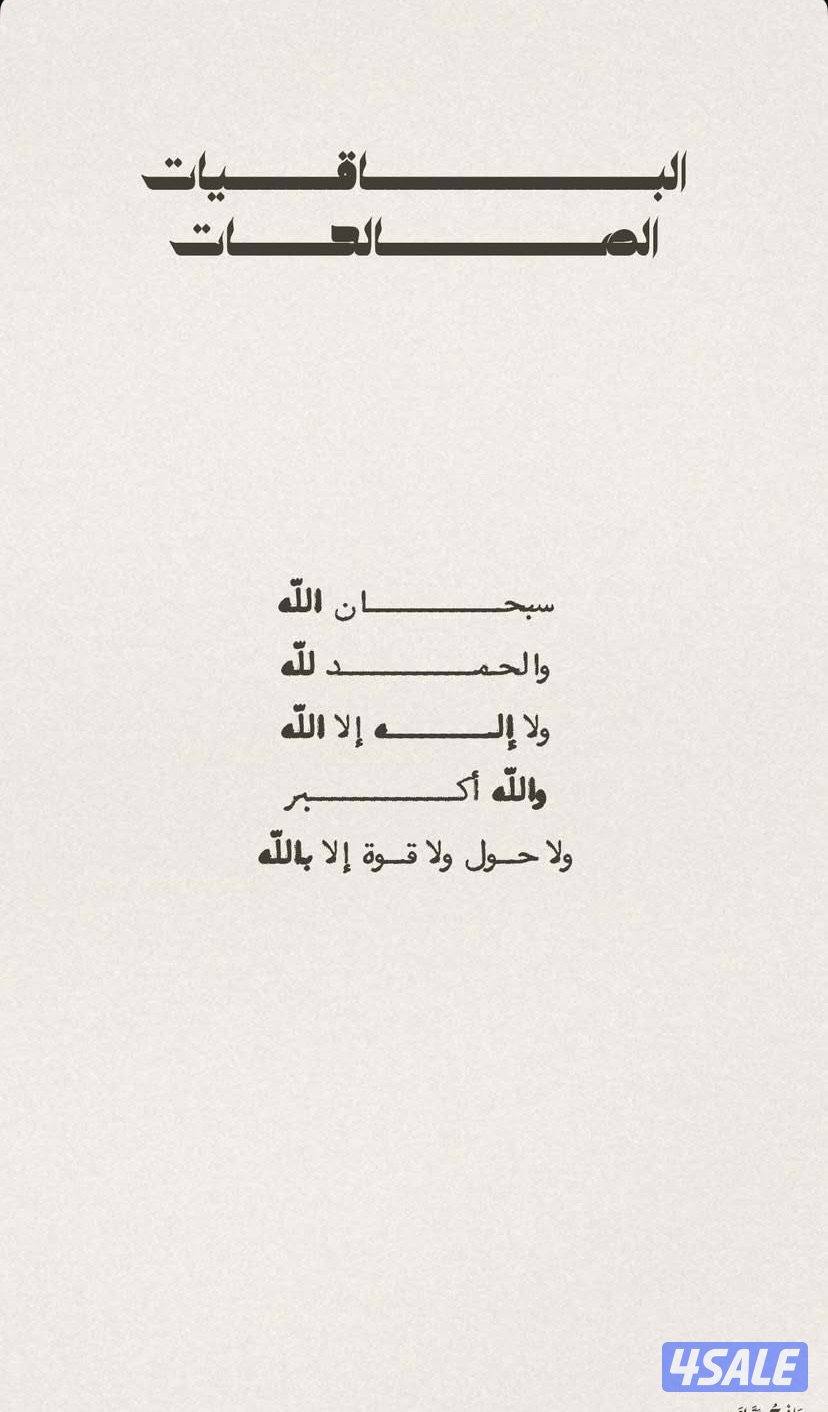 الباقيات
الصالحات
سبحان اللّه
والحمد للّه
ولا إله إلا اللّه
واللّه أكبر
ولا حول ولا قوة إلا باللّه
4SALE